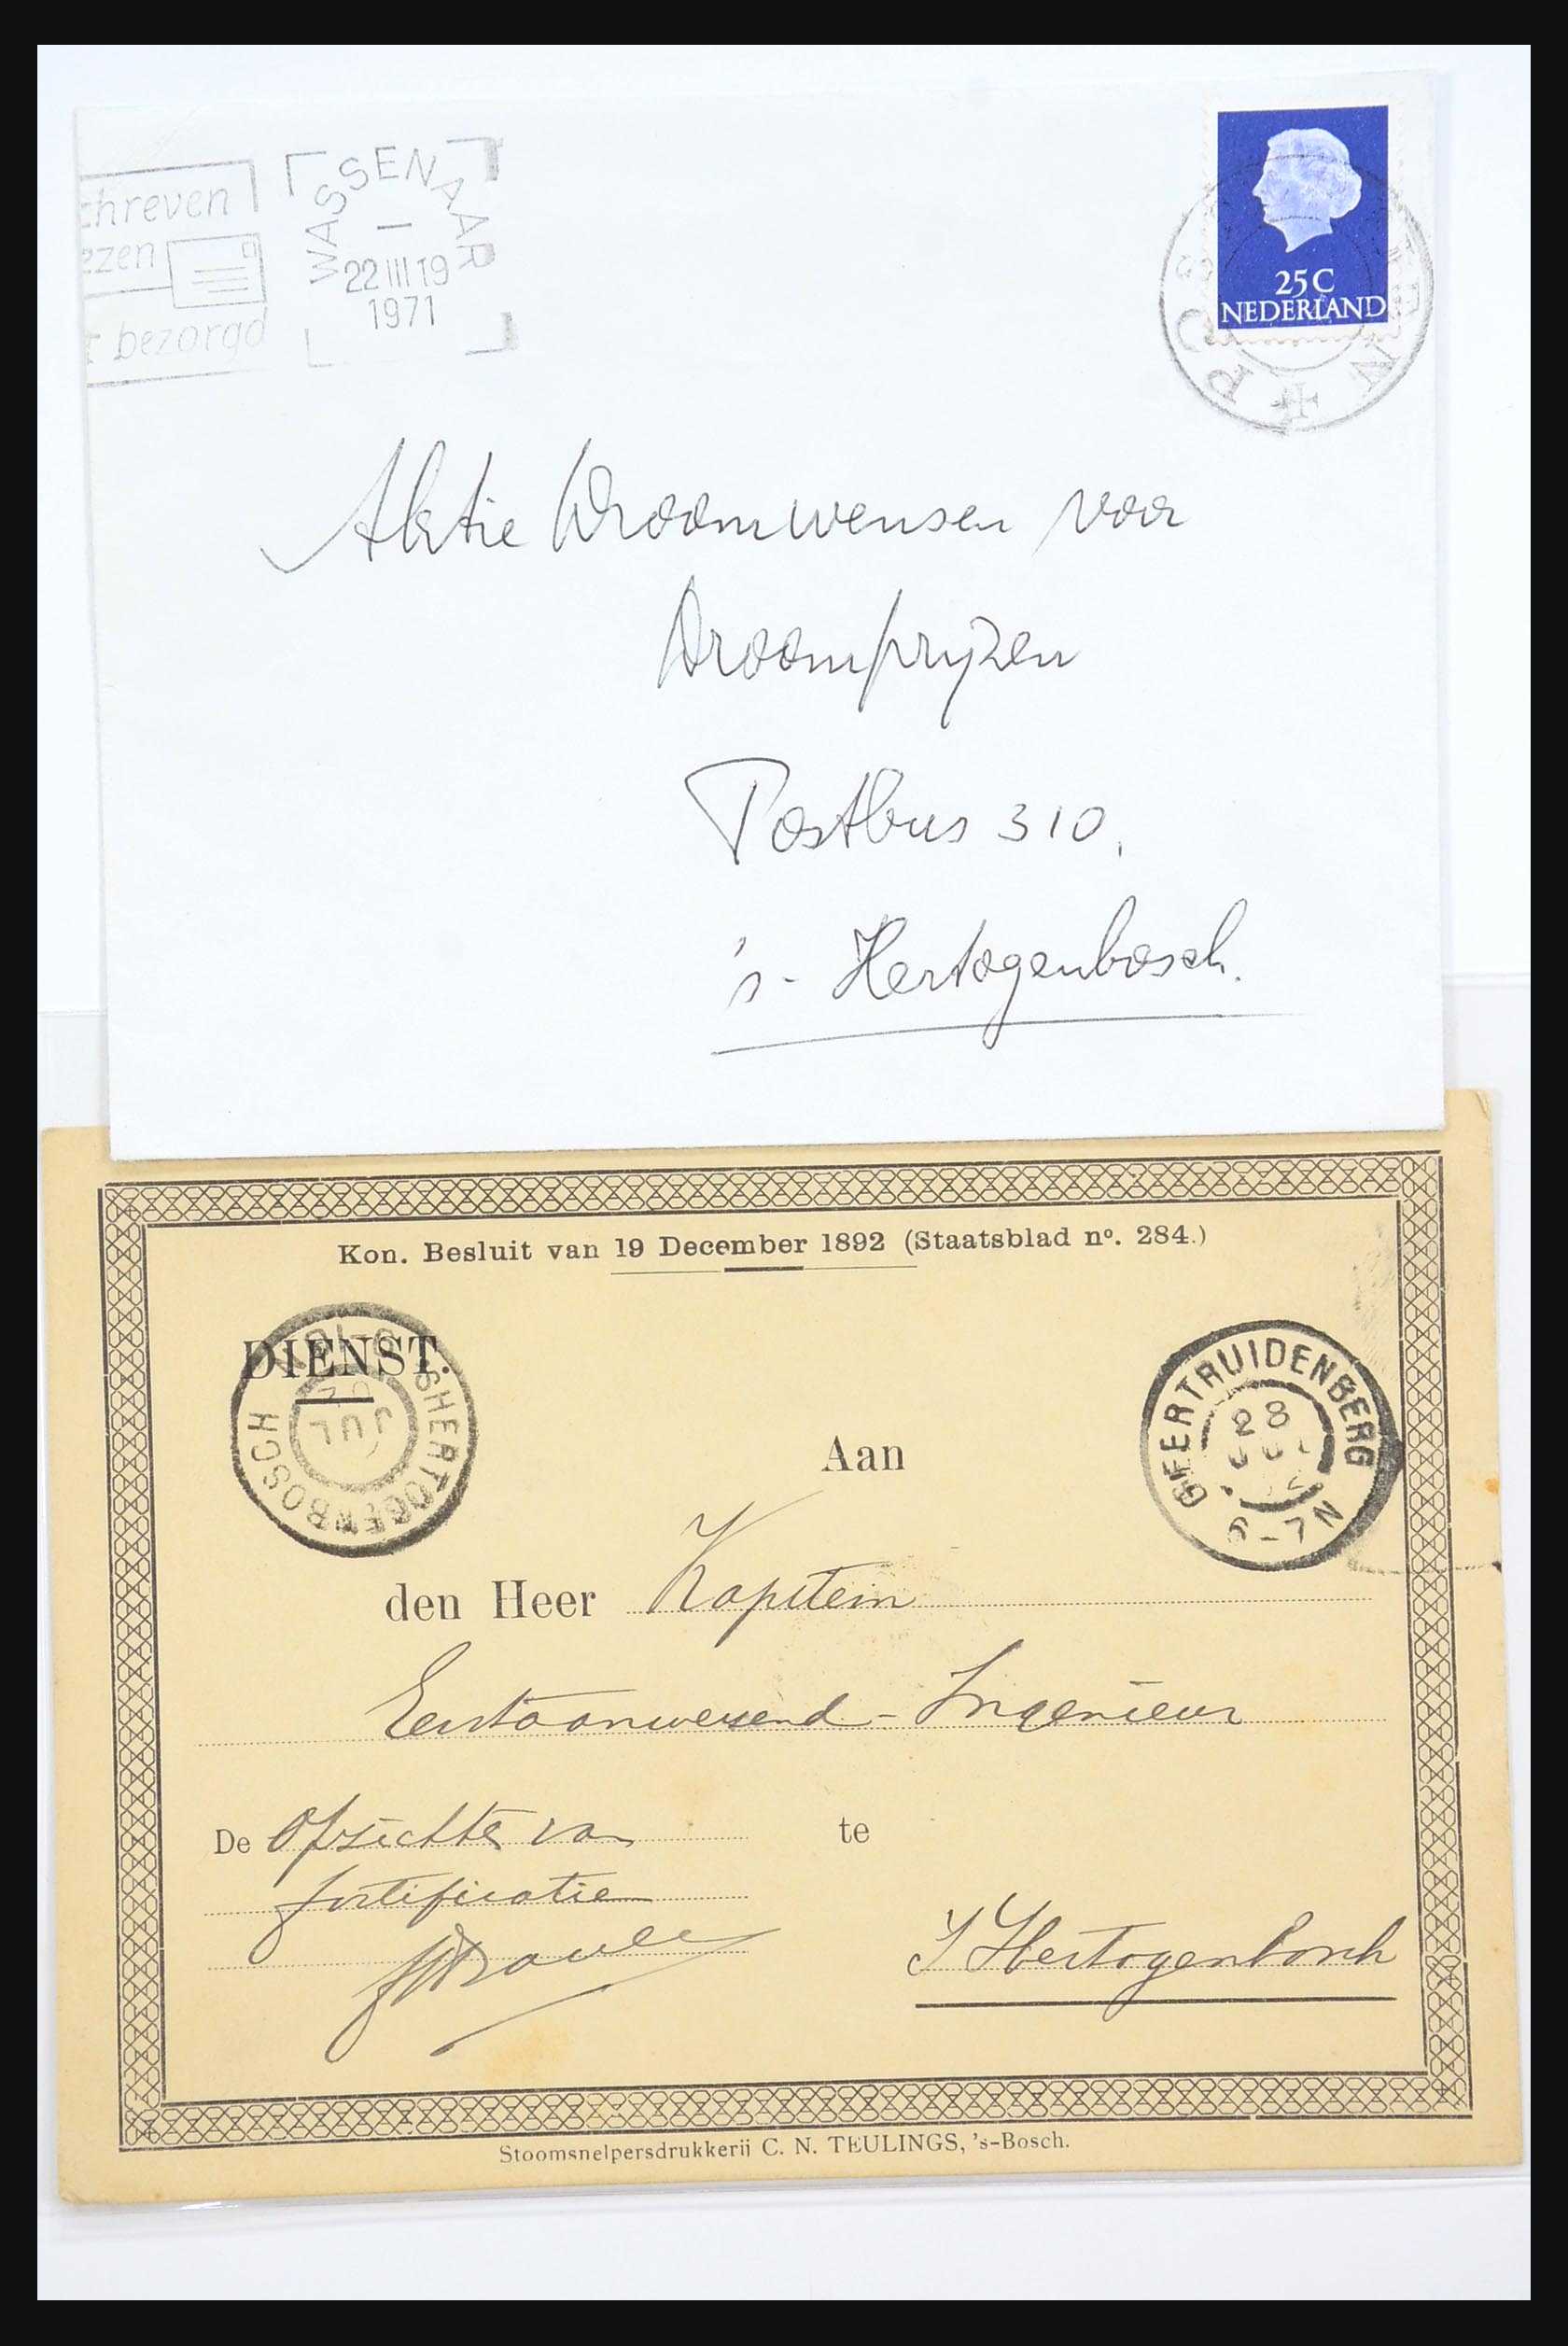 chreven
ezen
t bezorgd
WASSENAAR
I
22 III 19
1971
25 C
NEDERLAND
Aktie Droomwensen voor
Droomprijzen
Postbus 310.
's-Hertogenbosch.
Kon. Besluit van 19 December 1892 (Staatsblad nº. 284.)
DIENST.
SHERTOGENBOSCH
JUL
GEERTRUIDENBERG
28
6-7N
Aan
den Heer Kapitein
Eerstaanwezend-Ingenieur
De Opzichter van
fortificatie
te
S Hertogenbosch
Stoomsnelpersdrukkerij C. N. TEULINGS, 's-Bosch.